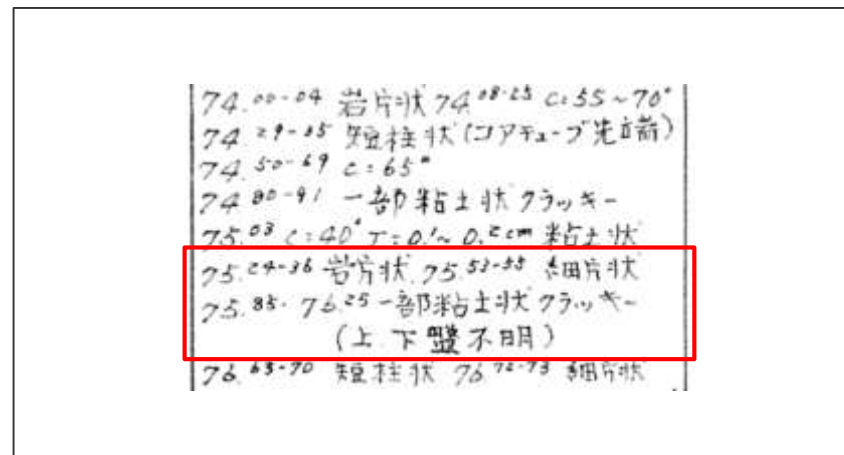 74.00-04 岩片状 74.08-25 C:55~70°
74.29-35 短柱状(コアチューブ先立端)
74.50-69 C=65°
74.80-91 一部粘土状クラッキー
75.03 C:40° T=0.1~0.2cm 粘土状
75.24-36 岩片状 75.53-55 細片状
75.85-76.25 一部粘土状クラッキー
(上.下盤不明)
76.63-70 短柱状 76.72-73 細片状